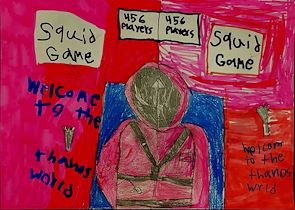 456 Players
456 Players
Squid Game
Squid Game
Welcome
to the
thanos
world
Welcom
to the
thanos
wrld